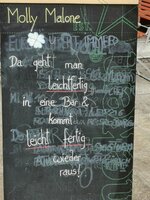 Molly Malone
Da geht man
leichtfertig
in eine Bar &
kommt
leicht fertig
wieder
raus!